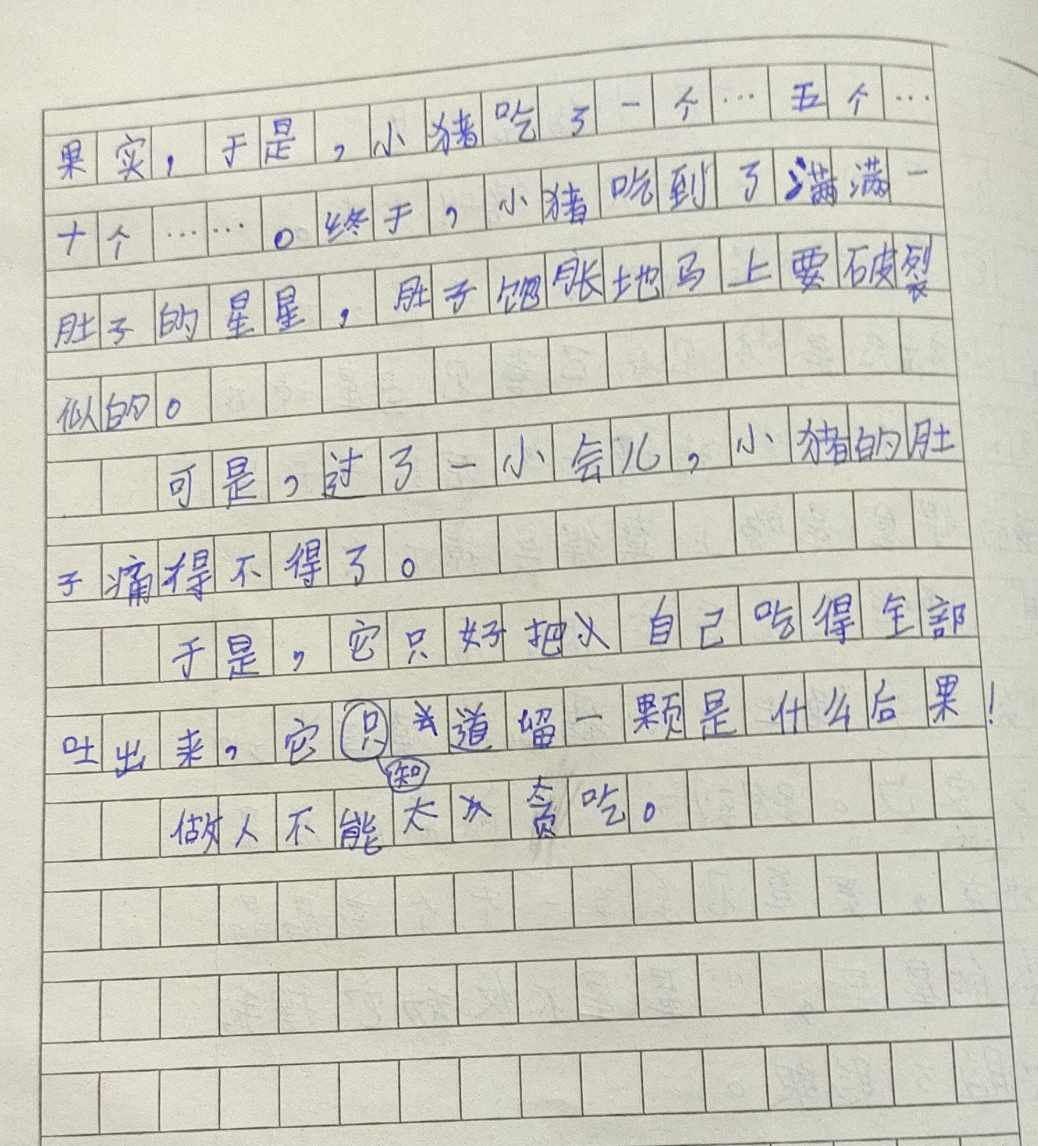 果实，于是，小猪吃了一个…五个…
十个……。终于，小猪吃到了满满一
肚子的星星，肚子饱胀地马上要破裂
似的。
可是，过了一小会儿，小猪的肚
子痛得不得了。
于是，它只好把自己吃得全部
吐出来，它知道留一颗是什么后果！
做人不能太贪吃。